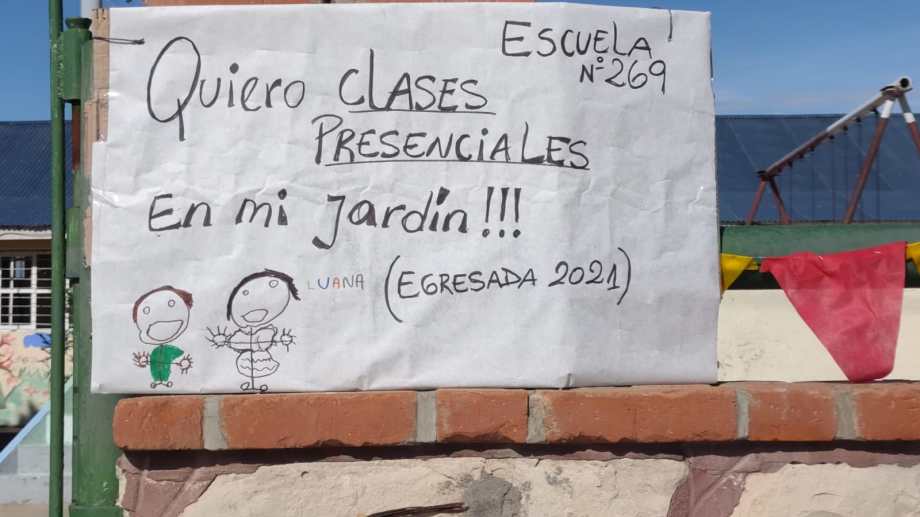 ESCUELA
N° 269
Quiero CLASES
PRESENCIALES
En mi Jardín!!!
LUANA (EGRESADA 2021)